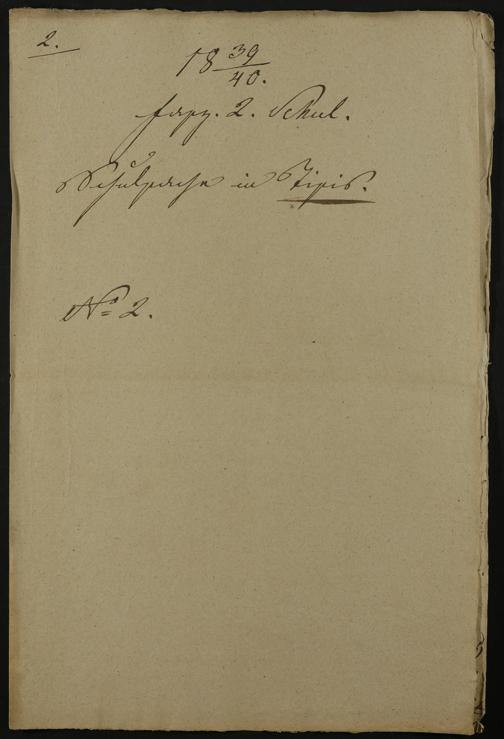 2.
18 39/40.
fasz. 2. Schul.
Schulsache in Tisis.
No 2.